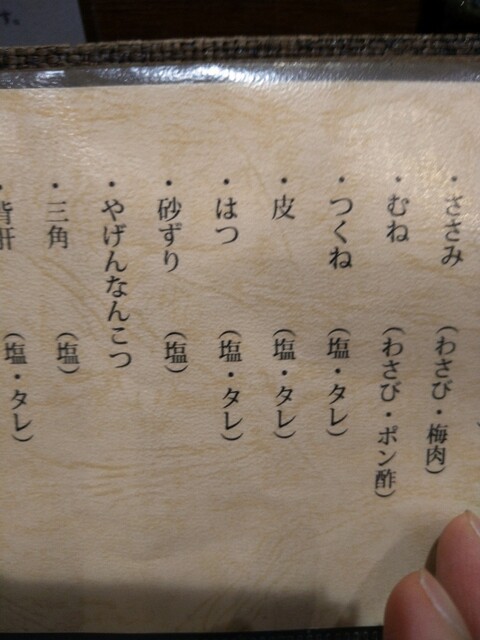 ・ささみ（わさび・梅肉）
・むね（わさび・ポン酢）
・つくね（塩・タレ）
・皮（塩・タレ）
・はつ（塩・タレ）
・砂ずり（塩）
・やげんなんこつ
・三角（塩）
・背肝（塩・タレ）
す。